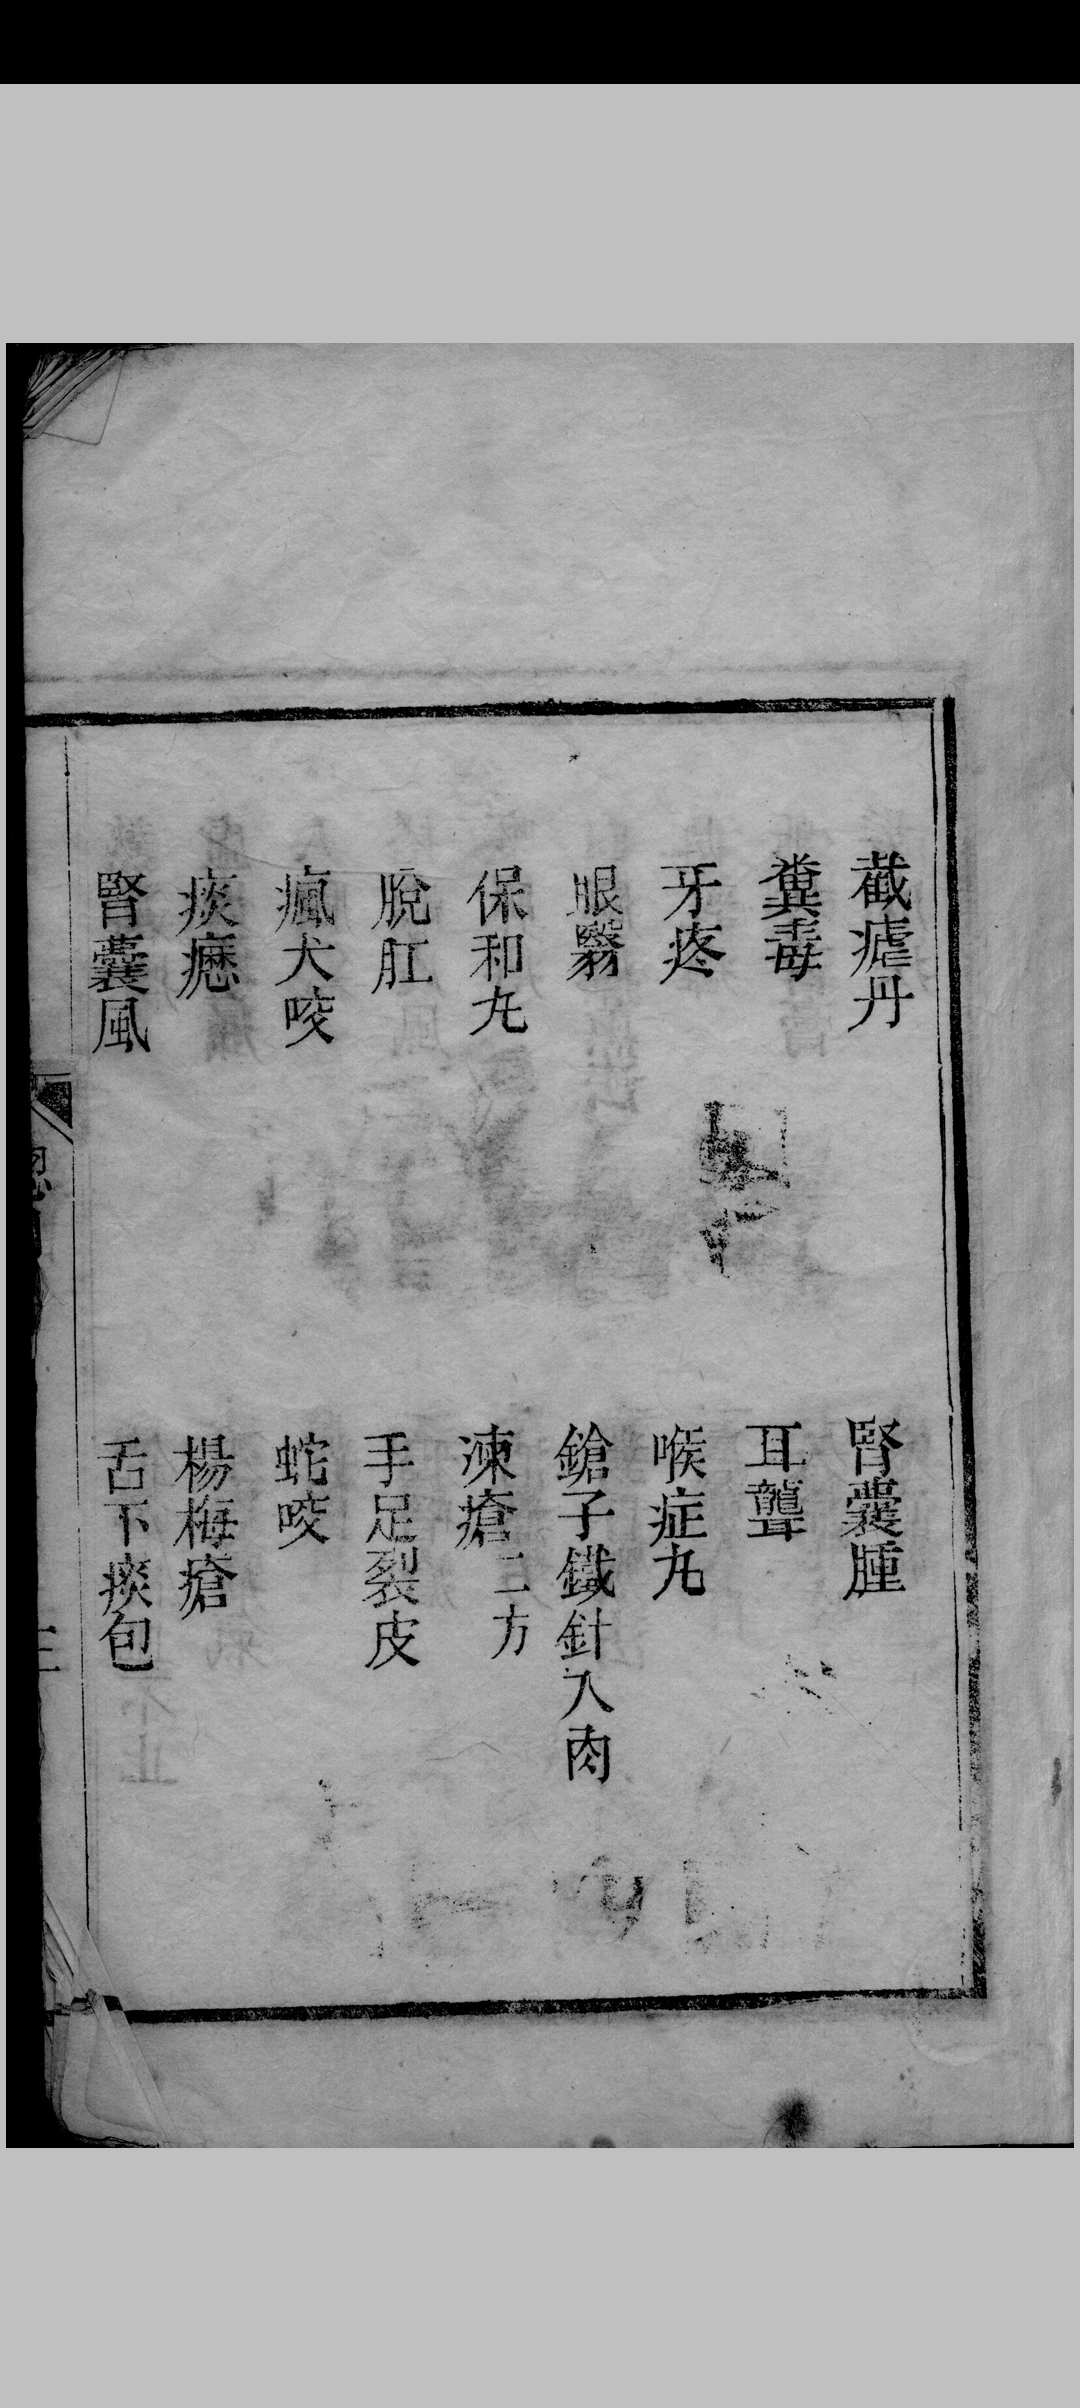 截瘧丹 腎囊腫
糞毒 耳聾
牙疼 喉症丸
眼翳 鎗子鐵針入肉
保和丸 凍瘡二方
脫肛 手足裂皮
瘋犬咬 蛇咬
痰癧 楊梅瘡
腎囊風 舌下痰包